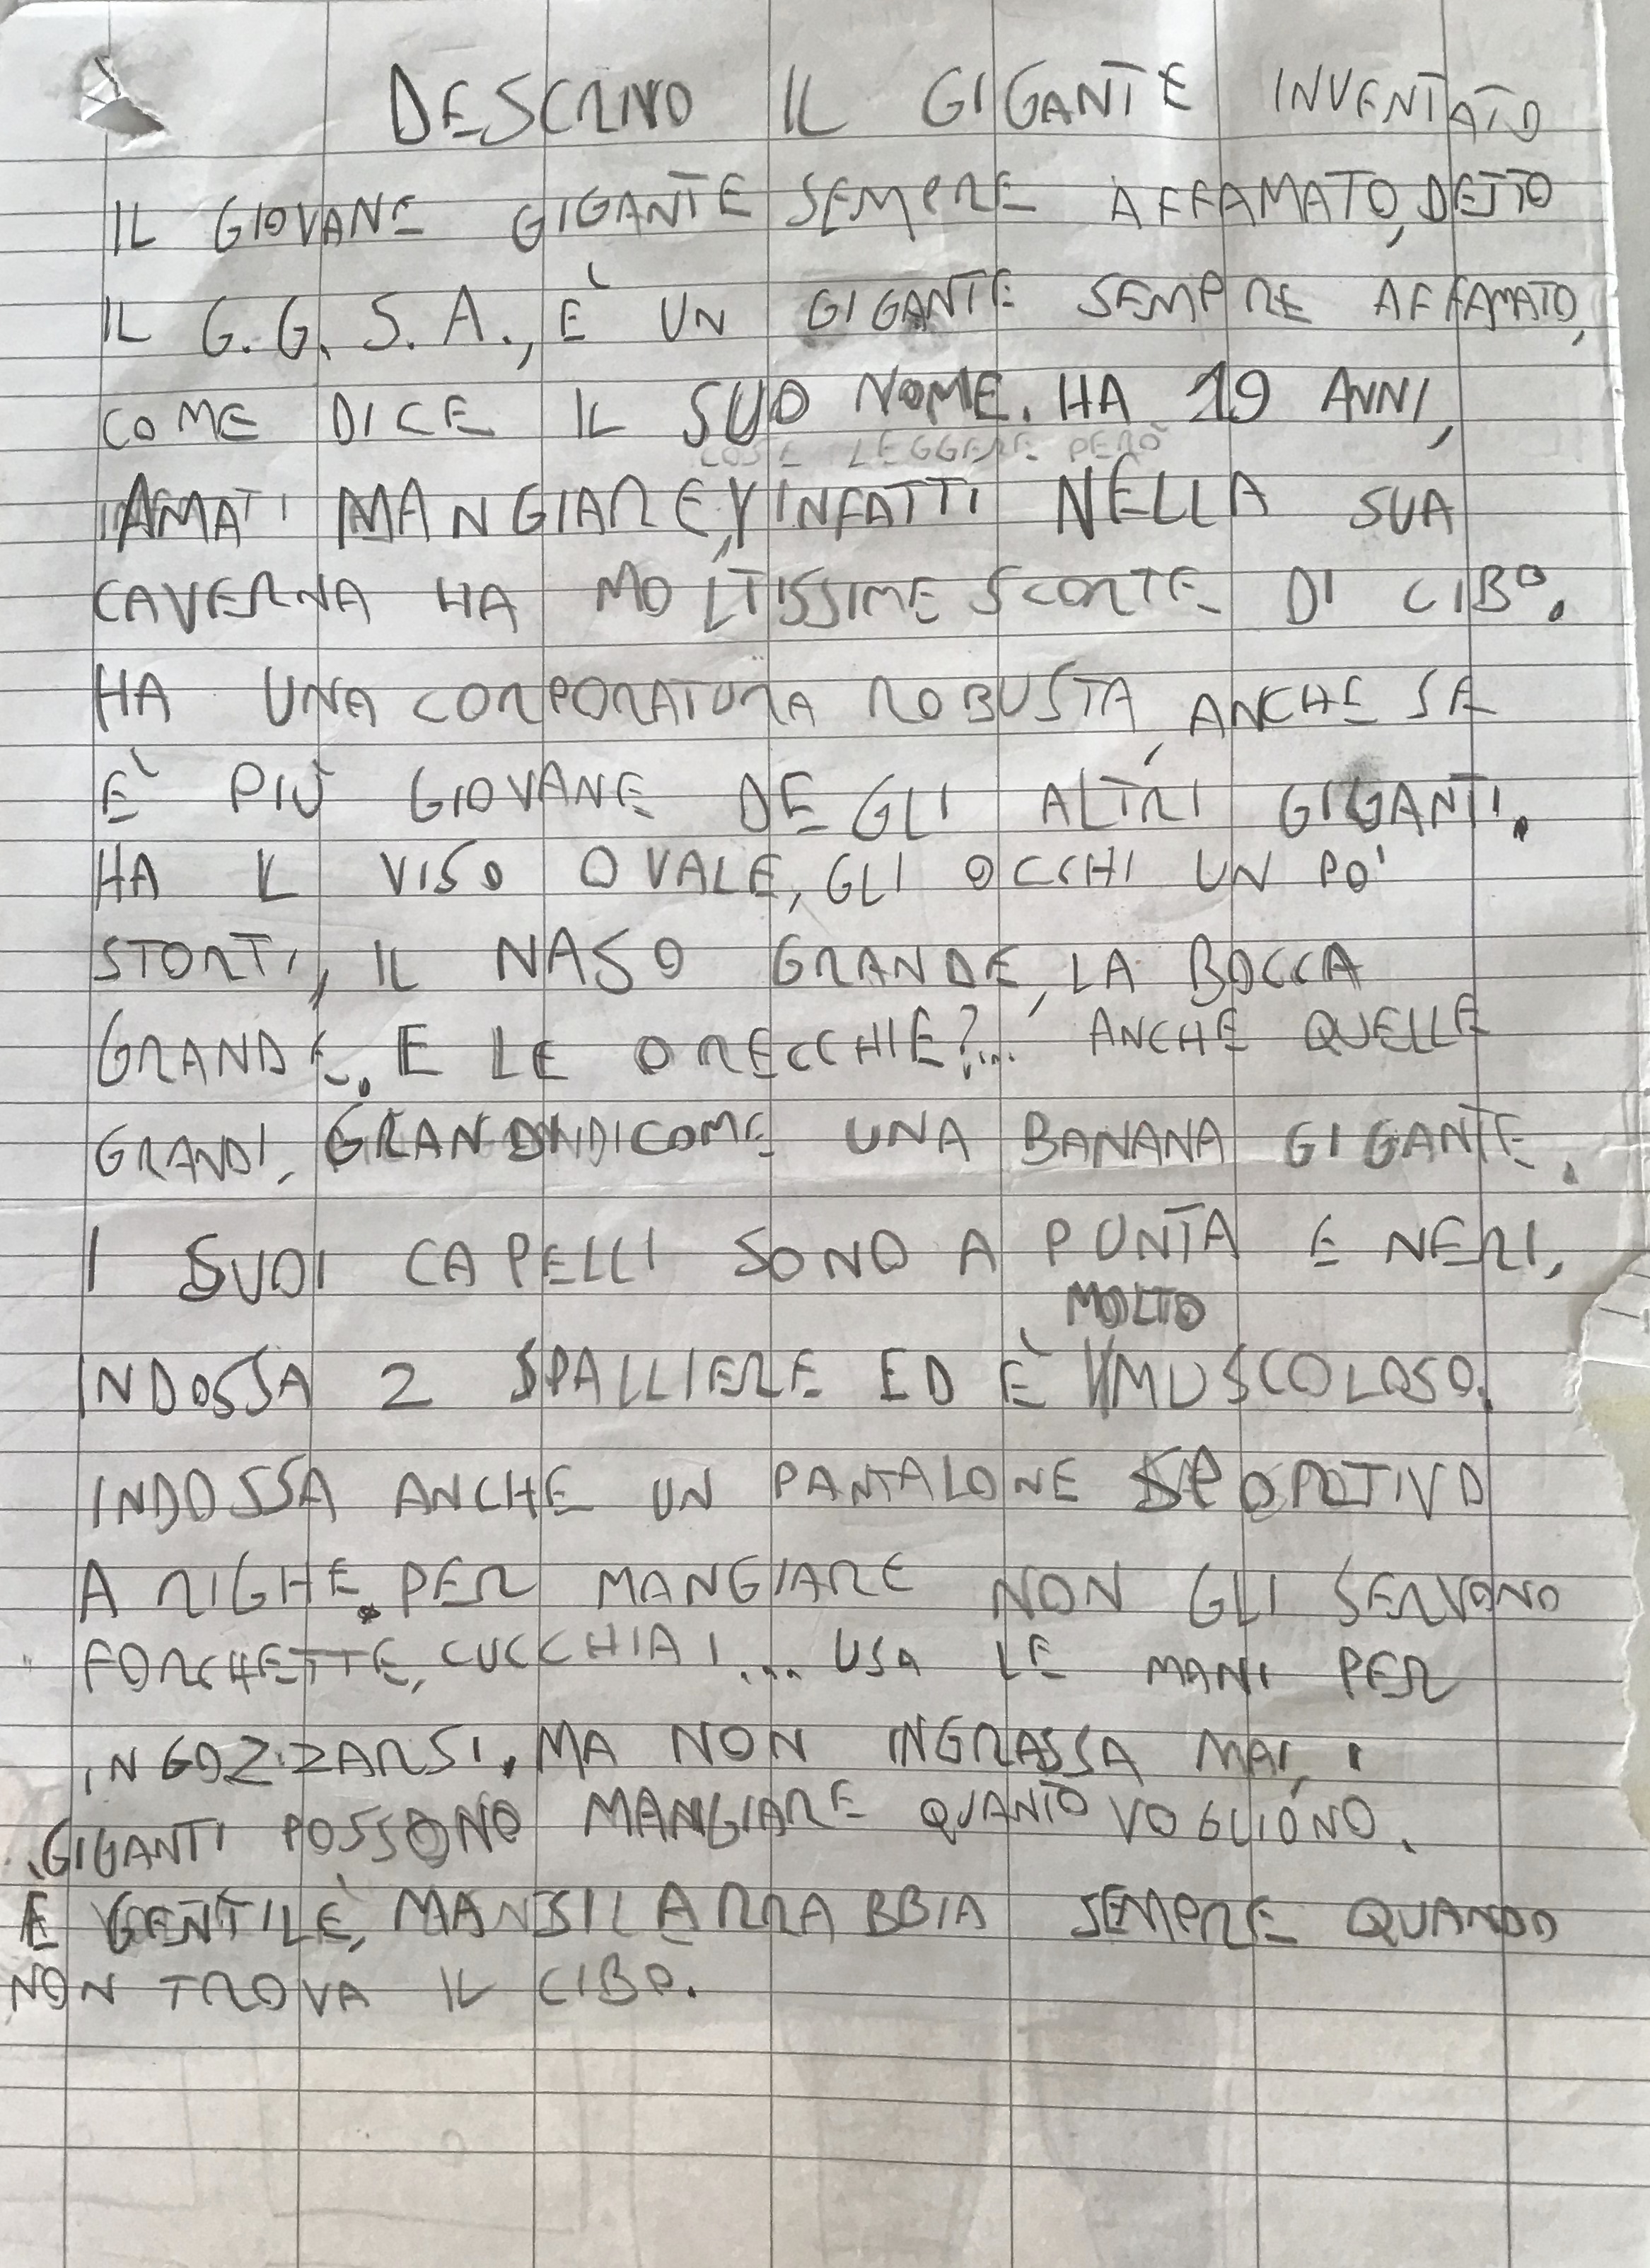 DESCRIVO IL GIGANTE INVENTATO
IL GIOVANE GIGANTE SEMPRE AFFAMATO, DETTO
IL G.G.S.A., È UN GIGANTE SEMPRE AFFAMATO,
COME DICE IL SUO NOME. HA 19 ANNI,
LEGGERE PERÒ
AMA MANGIARE, INFATTI NELLA SUA
CAVERNA HA MOLTISSIME SCORTE DI CIBO.
HA UNA CORPORATURA ROBUSTA, ANCHE SE
È PIÙ GIOVANE DEGLI ALTRI GIGANTI.
HA IL VISO OVALE, GLI OCCHI UN PO'
STORTI, IL NASO GRANDE, LA BOCCA
GRANDE. E LE ORECCHIE?... ANCHE QUELLE
GRANDI, GRANDI COME UNA BANANA GIGANTE.
I SUOI CAPELLI SONO A PUNTA E NERI,
MOLTO
INDOSSA 2 SPALLIERE ED È MUSCOLOSO.
INDOSSA ANCHE UN PANTALONE SPORTIVO
A RIGHE. PER MANGIARE NON GLI SERVONO
FORCHETTE, CUCCHIAI... USA LE MANI PER
INGOZZARSI. MA NON INGRASSA MAI, I
GIGANTI POSSONO MANGIARE QUANTO VOGLIONO.
È GENTILE, MA SI ARRABBIA SEMPRE QUANDO
NON TROVA IL CIBO.